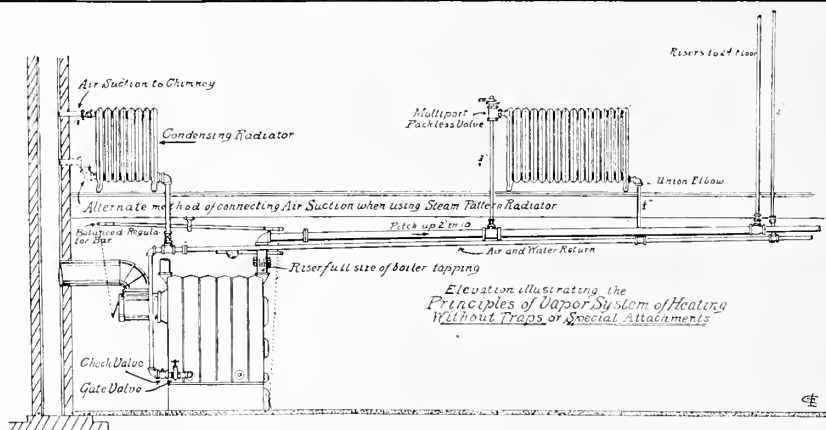 Risers to 2d Floor
Air Suction to Chimney
Multiport
Packless Valve
Condensing Radiator
1"
2"
Union Elbow
1"
Alternate method of connecting Air Suction when using Steam Pattern Radiator
Balanced Regula
tor Bar
Pitch up 2" in 10'
Air and Water Return
Riser full size of boiler tapping
Elevation illustrating the
Principles of Vapor System of Heating
Without Traps or Special Attachments
Check Valve
Gate Valve